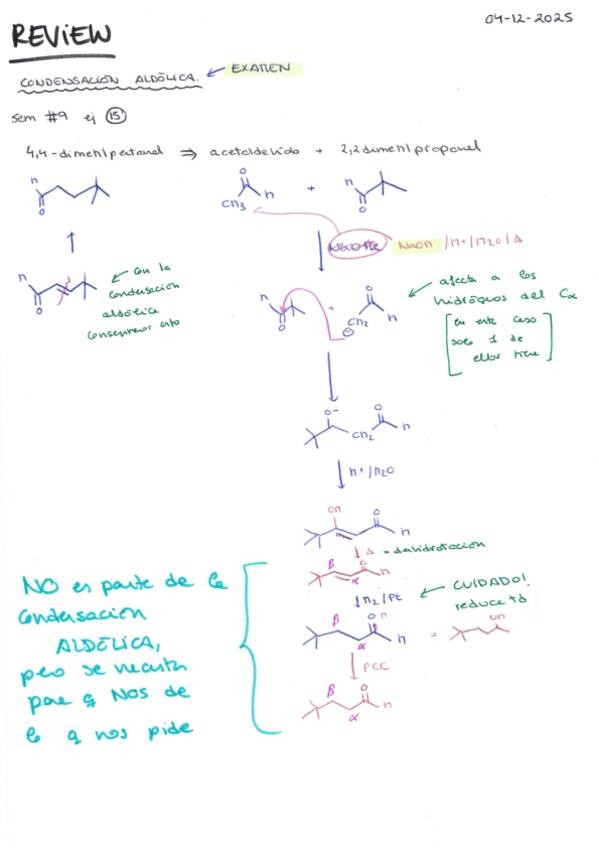 04-12-2025
REVIEW
CONDENSACIÓN ALDÓLICA. ← EXAMEN
sem #9 ej 15
4,4-dimetilpentanal ⇒ acetaldehido + 2,2 dimetilpropanal
H
O
O
CH3
H
+
H
O
NaOH /H+/H2O/Δ
H
O
con la
condensación
aldólica
conseguimos esto
H
O
+
O
CH2
H
⊖
afecta a los
hidrógenos del Cα
[en este caso
solo 1 de
ellos tiene]
O-
CH2
O
H
H+/H2O
OH
O
H
Δ = deshidratación
β
α
O
H
H2/Pt
CUIDADO!
reduce td
β
α
OH
H
=
OH
PCC
β
α
O
H
NO es parte de la
condensación
ALDÓLICA,
pero se necesita
para q NOS de
lo q nos pide